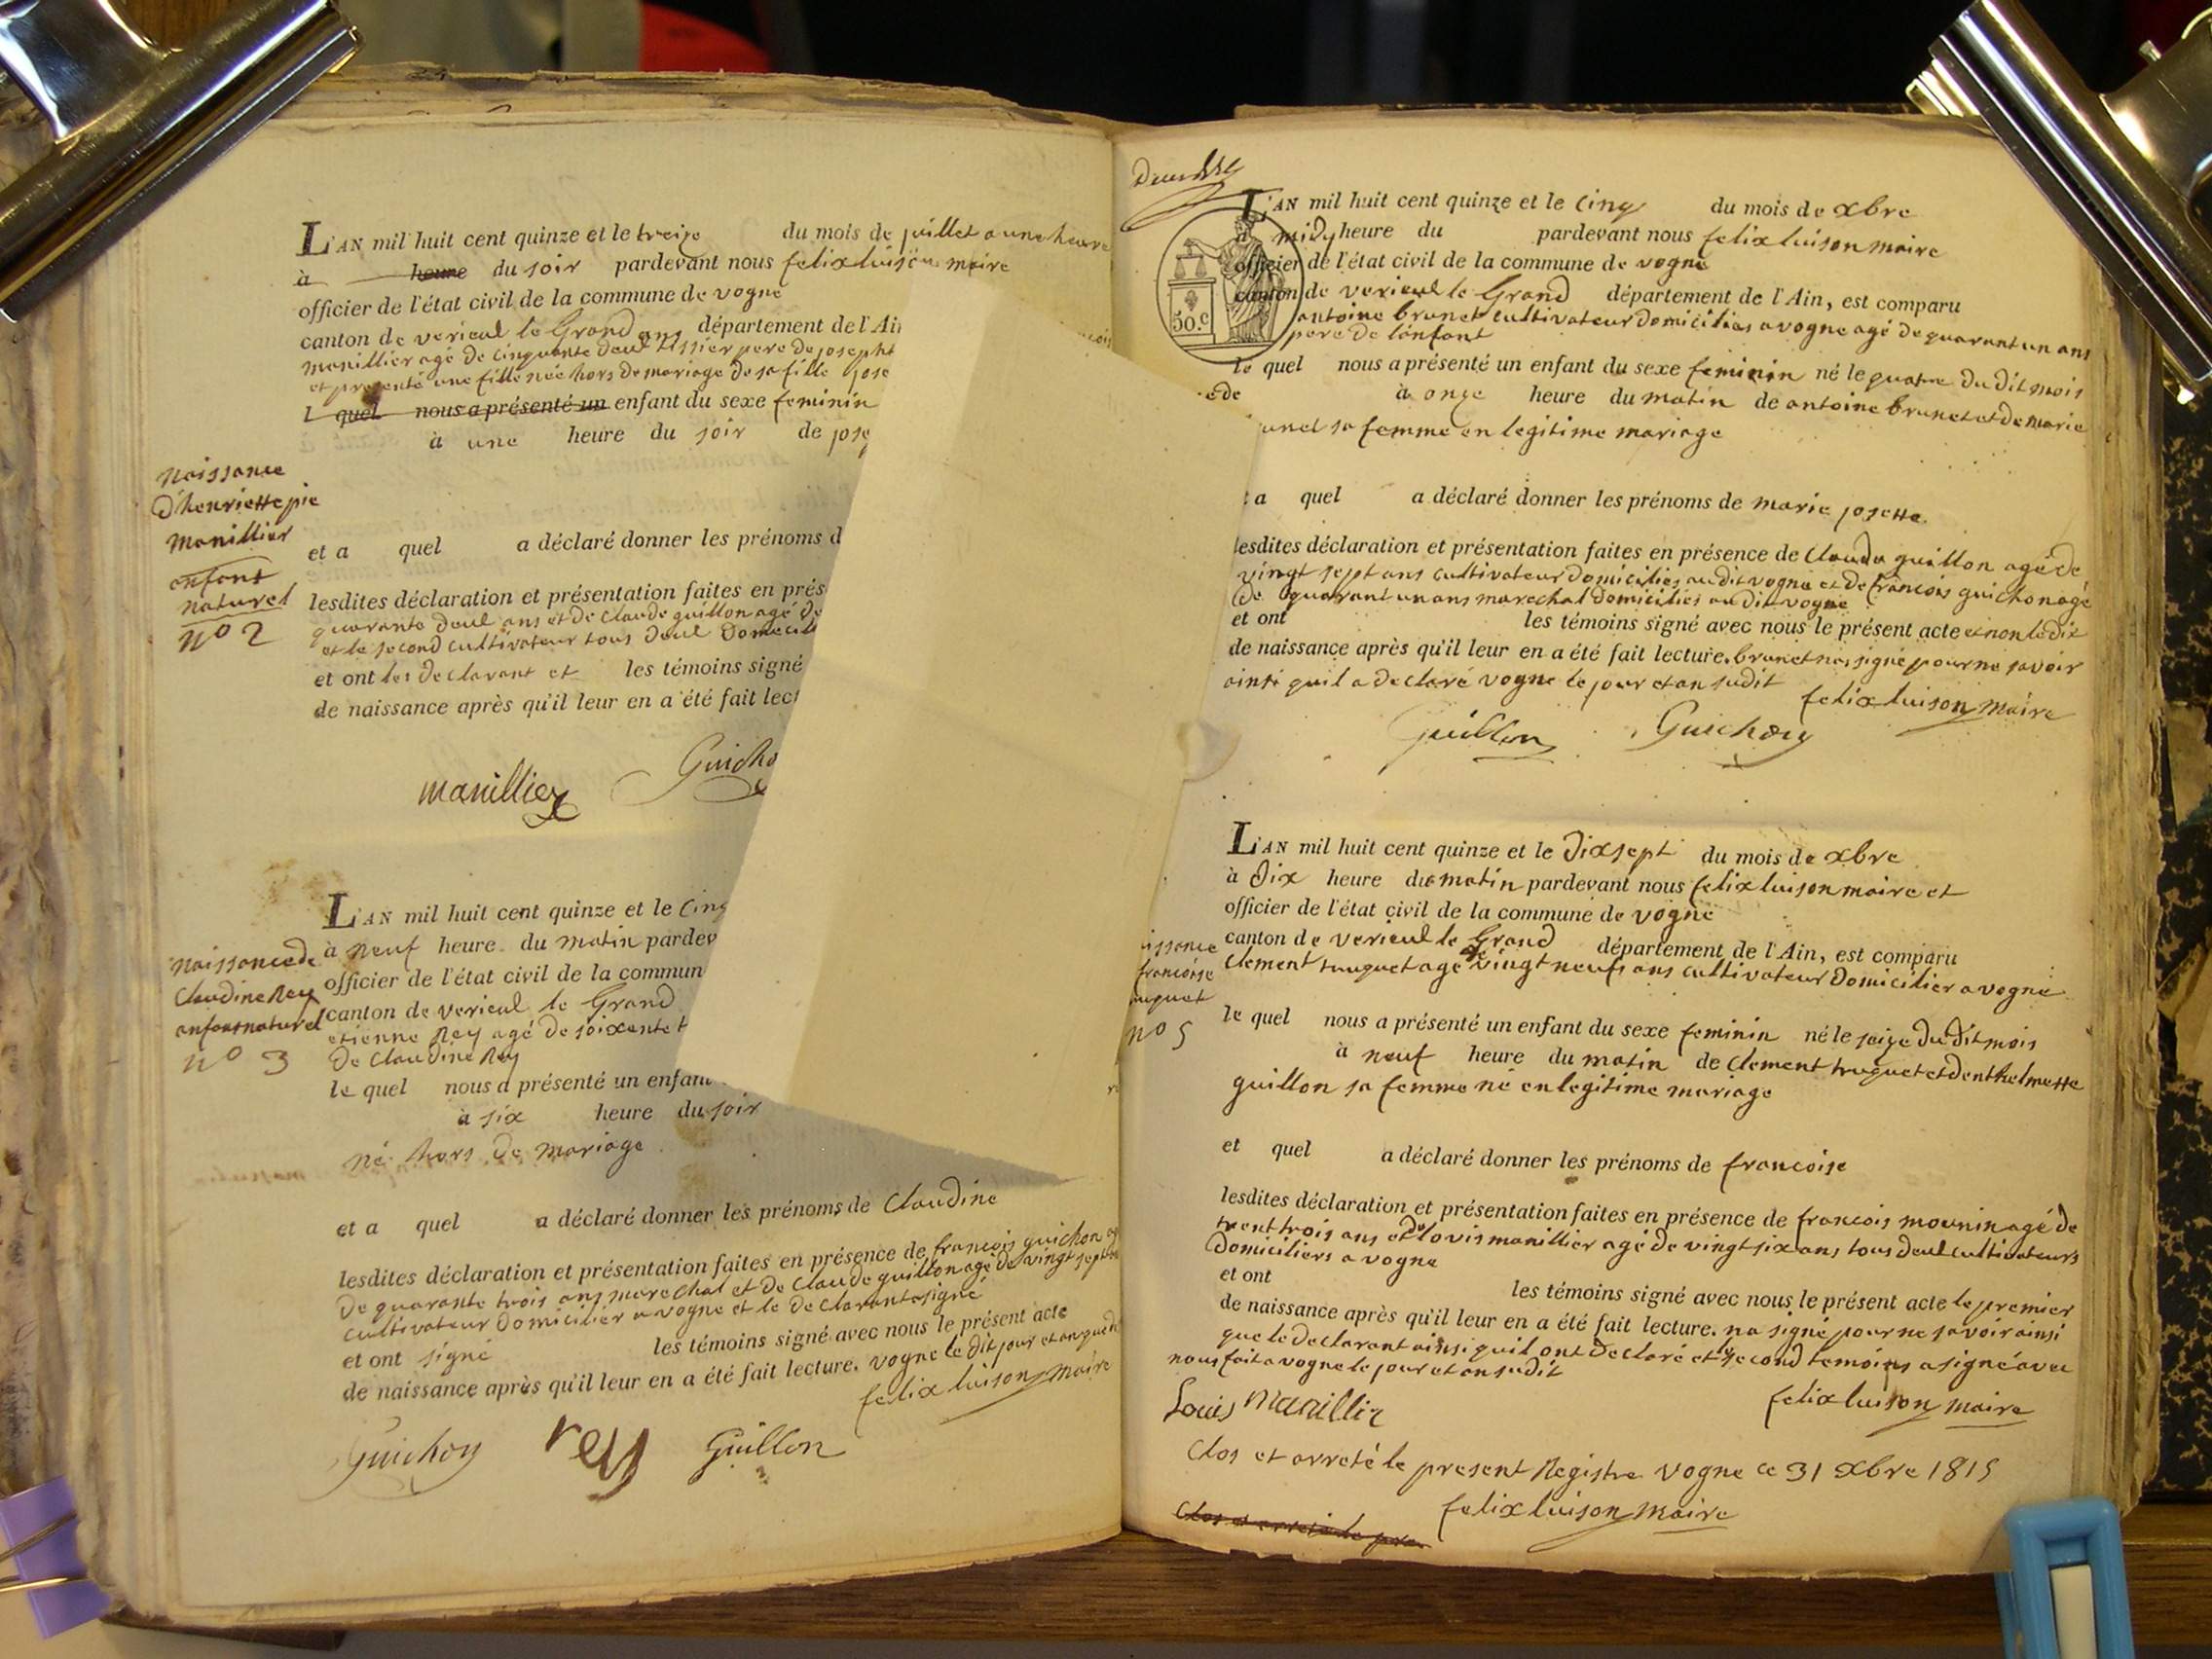 L'AN mil huit cent quinze et le treize du mois de juillet a une heure
à heure du soir pardevant nous felix luison maire
officier de l'état civil de la commune de vogne
canton de verieul le Grand département de l'Ai
manillier agé de cinquante deul ans pere de joseph
et presenté une fille née hors de mariage de sa fille jose
l quel nous a présenté un enfant du sexe feminin
à une heure du soir de jose
naissance
d'henriette pie
manillier
enfant
naturel
nº 2
et a quel a déclaré donner les prénoms d
lesdites déclaration et présentation faites en prés
quarante deul ans et de Claude guillon agé de
et le second cultivateur tous deul domicili
et ont les declarant et les témoins signé
de naissance après qu'il leur en a été fait lect
manillier Guicho
L'AN mil huit cent quinze et le cinq
à neuf heure du matin pardev
officier de l'état civil de la commun
canton de verieul le Grand
etienne Rey agé de soixante t
de Claudine Rey
le quel nous a présenté un enfan
à six heure du soir
né hors de mariage
naissance de
Claudine Rey
enfant naturel
nº 3
et a quel a déclaré donner les prénoms de Claudine
lesdites déclaration et présentation faites en présence de francois guichon
de quarante trois ans marechal et de Claude guillon agé de vingt sept
cultivateur domicilier a vogne et le declarant a signé
et ont signé les témoins signé avec nous le présent acte
de naissance après qu'il leur en a été fait lecture. vogne le dit jour et an que
felix luison maire
Guichon rey Guillon
L'AN mil huit cent quinze et le cinq du mois de xbre
à midy heure du pardevant nous felix luison maire
officier de l'état civil de la commune de vogne
canton de verieul le Grand département de l'Ain, est comparu
antoine brunet cultivateur domiciliés a vogne agé de quarant un ans
pere de l'enfant
50.c
le quel nous a présenté un enfant du sexe feminin né le quatre du dit mois
à onze heure du matin de antoine brunet et de marie
unel sa femme en legitime mariage
a quel a déclaré donner les prénoms de marie josette
lesdites déclaration et présentation faites en présence de Claude guillon agé de
vingt sept ans cultivateur domiciliés au dit vogne et de francois guichon agé
de quarant un ans marechal domiciliés au dit vogne
et ont les témoins signé avec nous le présent acte et non le dit
de naissance après qu'il leur en a été fait lecture. brunet na signé pour ne savoir
ainsi quil a declaré vogne le jour et an sudit
felix luison maire
Guillon Guichon
L'AN mil huit cent quinze et le dix sept du mois de xbre
à dix heure du matin pardevant nous felix luison maire et
officier de l'état civil de la commune de vogne
canton de verieul le Grand département de l'Ain, est comparu
Clement truquet agé de vingt neufs ans cultivateur domicilier a vogne
issance
francoise
uquet
nº 5
le quel nous a présenté un enfant du sexe feminin né le seize du dit mois
à neuf heure du matin de Clement truquet et denthelmette
guillon sa femme né en legitime mariage
et quel a déclaré donner les prénoms de francoise
lesdites déclaration et présentation faites en présence de francois mounin agé de
trent trois ans et de lovis manillier agé de vingt six ans tous deul cultivateurs
domiciliers a vogne
et ont les témoins signé avec nous le présent acte le premier
de naissance après qu'il leur en a été fait lecture. na signé pour ne savoir ainsi
que le declarant ainsi quil ont declaré et le second temoins a signé avec
nous fait a vogne le jour et an sudit
Louis Manillier felix luison maire
Clos et arreté le present Registre vogne ce 31 xbre 1815
felix luison maire
Clos et arreté le pre